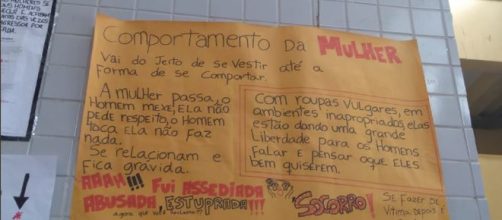 Comportamento Da MULHER
Vai do Jeito de se Vestir até a
forma de se Comportar.
A mulher passa, o
Homem mexe, Ela não
pede respeito, o Homem
toca Ela não faz
nada.
Se relacionam e
fica grávida.
Com roupas Vulgares, em
ambientes inapropriados, elas
estão dando uma grande
Liberdade para os Homens
falar e pensar oque ELES
bem quiserem.
AAAH!!! Fui ASSEDIADA
ABUSADA ESTUPRADA!!!
SOCORRO!
SE FAZER DE
Vitima DEPOIS É